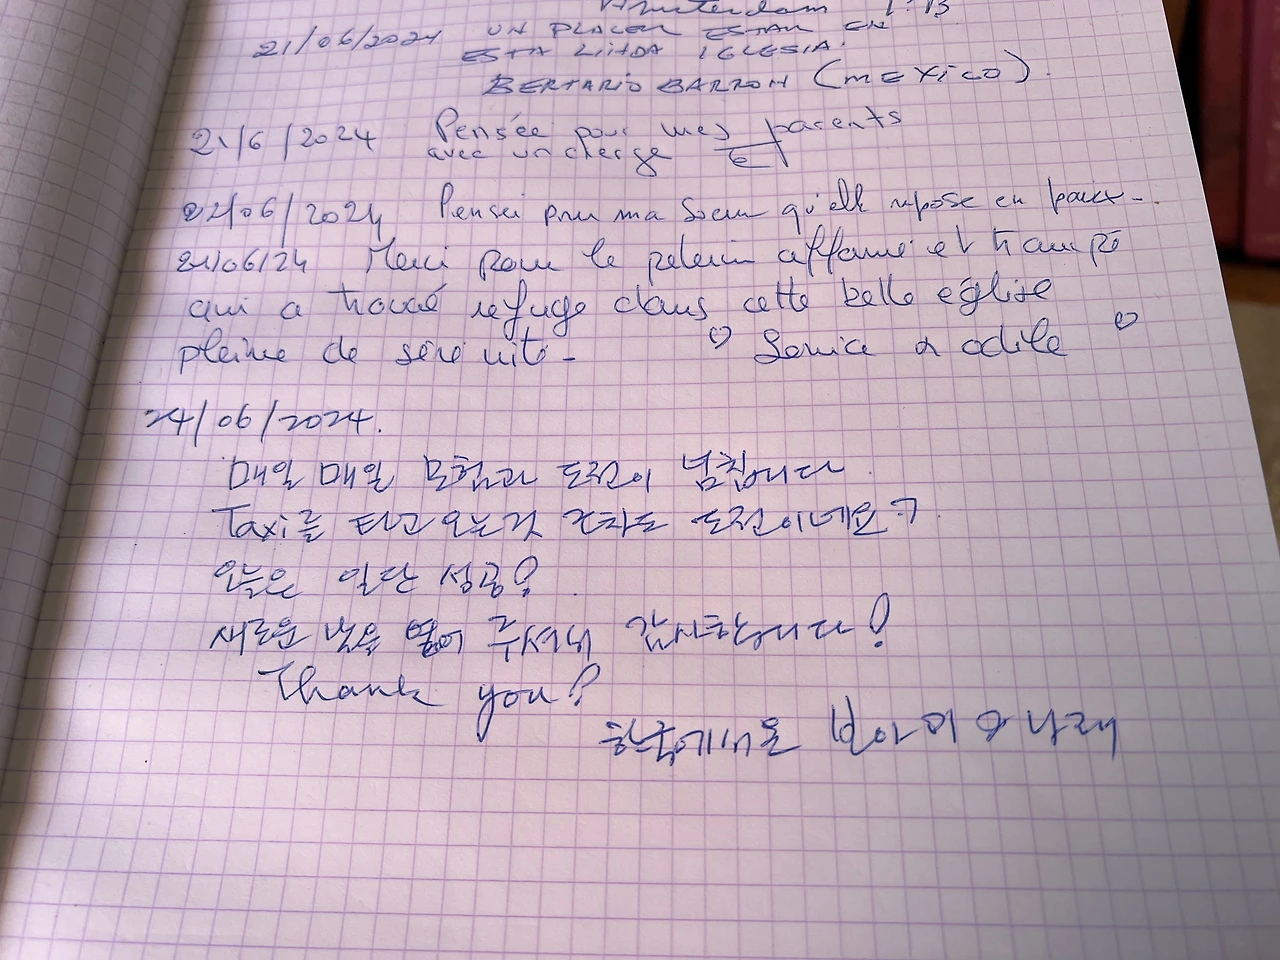 Amsterdam
21/06/2024 UN PLACER ESTAR EN
ESTA LINDA IGLESIA.
BERTARIO BARRON (MEXICO).
21/6/2024 Pensée pour mes parents
avec un cherge
21/06/2024 Pensei pour ma Soeur qu'elle repose en paix-.
21/06/24 Merci pour le pelerin affamé et trempé
qui a trouvé refuge dans cette belle église
pleine de sérénité - ♡ & odile ♡
24/06/2024.
매일 매일 모험과 도전이 넘칩니다.
Taxi를 타고 오는것 조차도 도전이네요
오늘은 일단 성공!
새로운 낮을 열어 주셔서 감사합니다!
Thank you!
한국에서 온